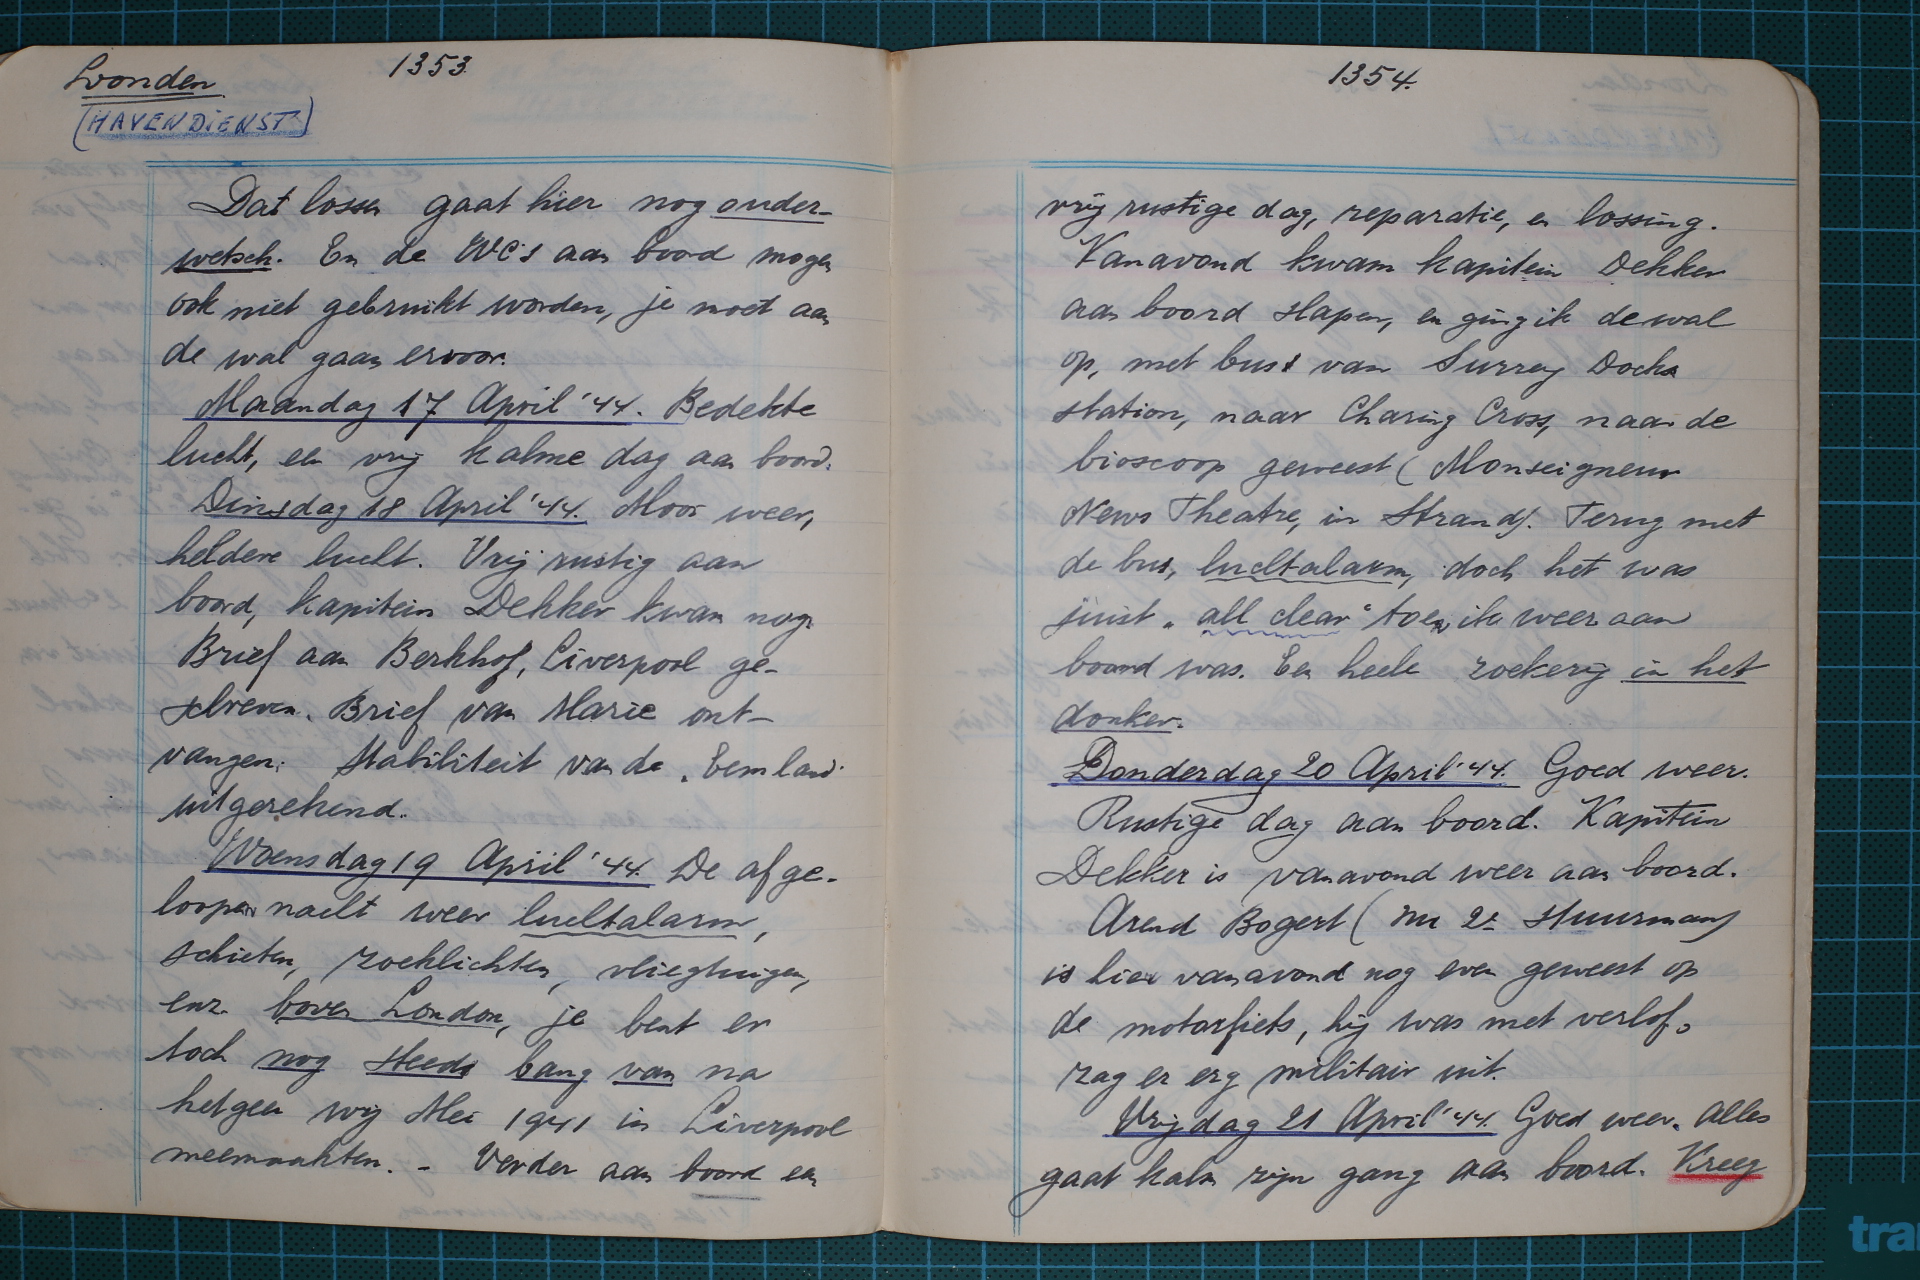 Londen
1353
(HAVENDIENST)
Dat lossen gaat hier nog ouder-
wetsch. En de WC's aan boord mogen
ook niet gebruikt worden, je moet aan
de wal gaan ervoor.
Maandag 17 April '44. Bedekte
lucht, een vrij kalme dag aan boord.
Dinsdag 18 April '44. Mooi weer,
heldere lucht. Vrij rustig aan
boord, kapitein Dekker kwam nog.
Brief aan Berkhof, Liverpool ge-
schreven. Brief van Marie ont-
vangen. Stabiliteit van de "Eemland"
uitgerekend.
Woensdag 19 April '44. De afge-
loopen nacht weer luchtalarm,
schieten, zoeklichten, vliegtuigen,
enz. boven London, je bent er
toch nog steeds bang van na
hetgeen wij Mei 1941 in Liverpool
meemaakten. - Verder aan boord een
1354.
vrij rustige dag, reparatie, en lossing.
Vanavond kwam kapitein Dekker
aan boord slapen, en ging ik de wal
op, met bus van Surrey Docks
station, naar Charing Cross, naar de
bioscoop geweest (Monseigneur
News Theatre, in Strand). Terug met
de bus, luchtalarm, doch het was
juist "all clear" toen ik weer aan
boord was. Een heele zoekerij in het
donker.
Donderdag 20 April '44. Goed weer.
Rustige dag aan boord. Kapitein
Dekker is vanavond weer aan boord.
Arend Bogert (nu 2e Stuurman)
is hier vanavond nog even geweest op
de motorfiets, hij was met verlof,
zag er erg militair uit.
Vrijdag 21 April '44. Goed weer. Alles
gaat kalm zijn gang aan boord. Kreeg
tra